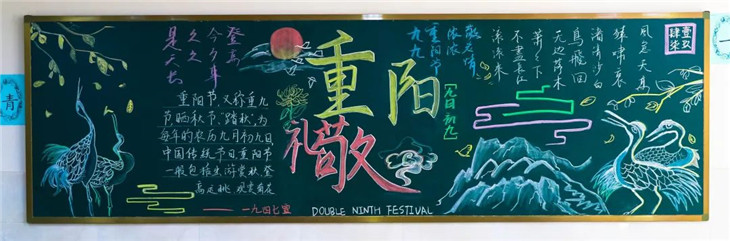 登高
久久
重阳节,又称重九
节晒秋节"踏秋"为
每年的农历九月初九日
中国传统节日重阳节
一般包括出游赏秋登
高远眺 观赏菊花
一九四七壹
重阳
礼敬
DOUBLE NINTH FESTIVAL
敬老情
浓浓
重阳节
九九
[九日初九]
风急天高
猿啸哀
渚清沙白
鸟飞回
无边落木
萧々下
不尽长江
滚滚来
壹玖
肆柒
青